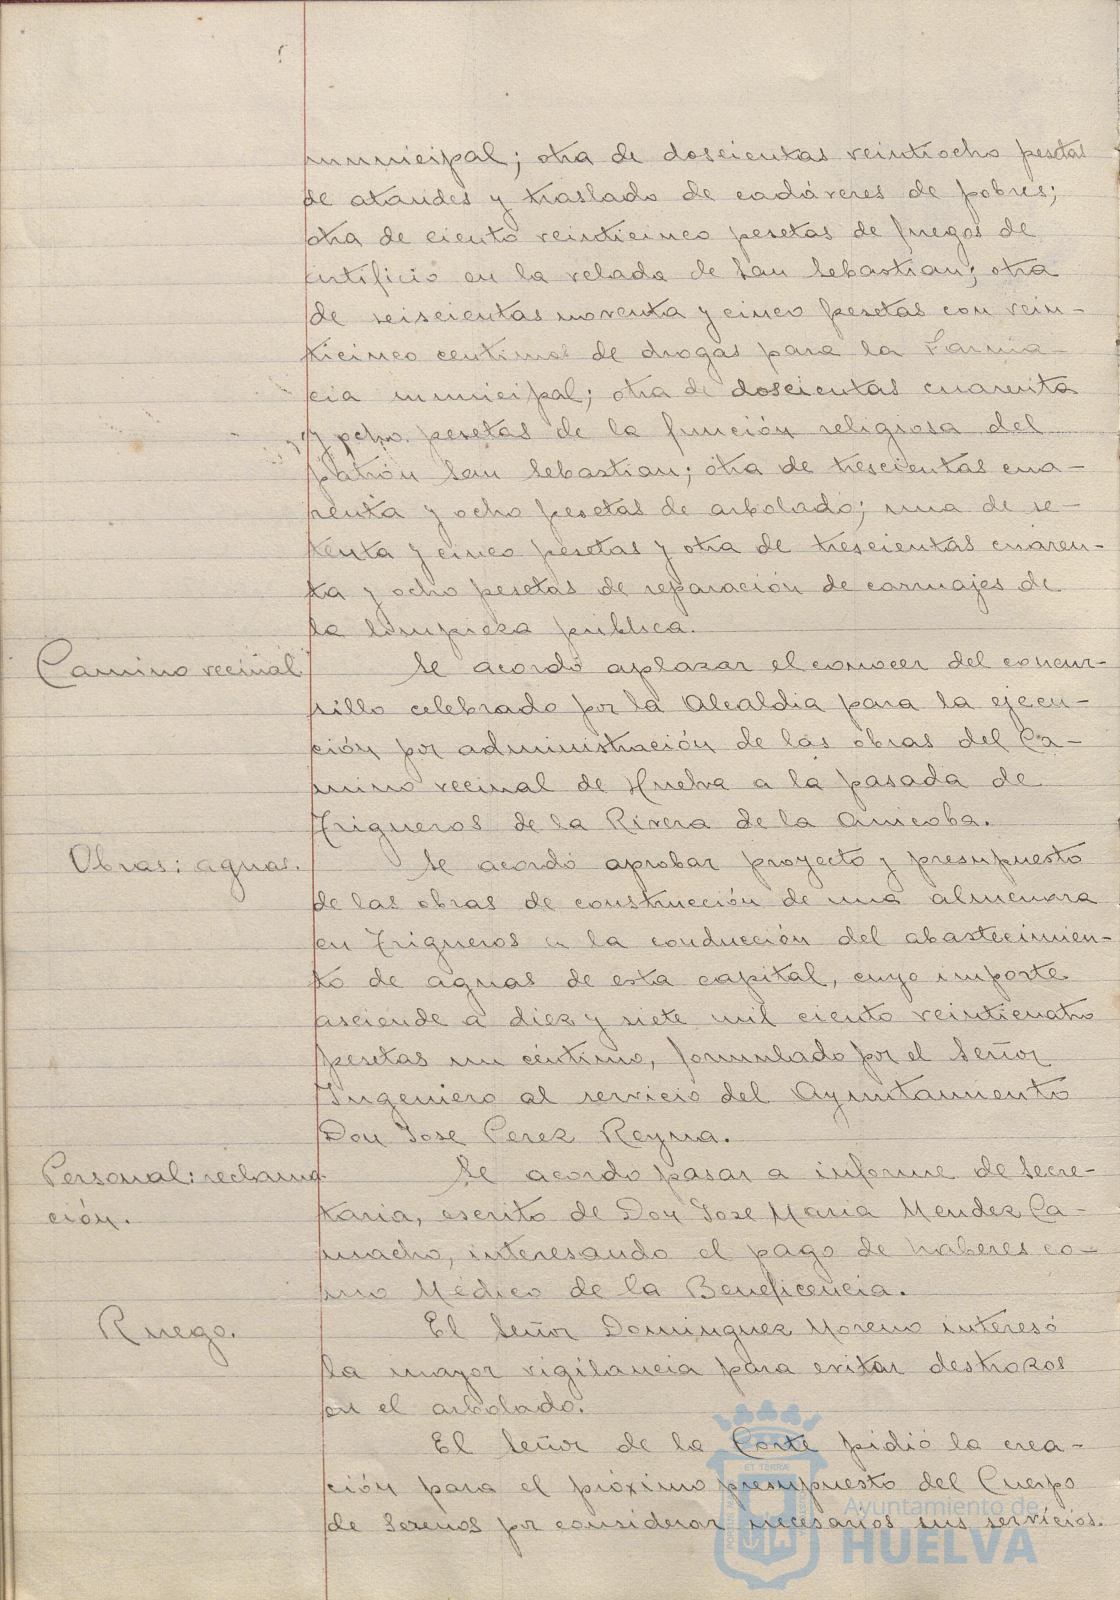 municipal; otra de doscientas veintiocho pesetas
de ataudes y traslado de cadáveres de pobres;
otra de ciento veinticinco pesetas de fuegos de
artificio en la velada de San Sebastian; otra
de seiscientas noventa y cinco pesetas con vein-
ticinco centimos de drogas para la Farma-
cia municipal; otra de doscientas cuarenta
y ocho pesetas de la función religiosa del
patrón San Sebastian; otra de trescientas cua-
renta y ocho pesetas de arbolado; una de se-
tenta y cinco pesetas y otra de trescientas cuaren-
ta y ocho pesetas de reparación de carruajes de
la limpieza publica.
Camino vecinal
Se acordó aplazar el conocer del concur-
sillo celebrado por la Alcaldia para la ejecu-
ción por administración de las obras del Ca-
mino vecinal de Huelva a la pasada de
Trigueros de la Rivera de la Anicoba.
Obras: aguas.
Se acordó aprobar proyecto y presupuesto
de las obras de construcción de una almenara
en Trigueros en la conducción del abastecimien-
to de aguas de esta capital, cuyo importe
asciende a diez y siete mil ciento veinticuatro
pesetas un céntimo, formulado por el Señor
Ingeniero al servicio del Ayuntamiento
Don Jose Perez Reyna.
Personal: reclama
ción.
Se acordo pasar a informe de Secre-
taria, escrito de Don Jose Maria Mendez Ca-
macho, interesando el pago de haberes co-
mo Médico de la Beneficencia.
Ruego.
El Señor Dominguez Moreno interesó
la mayor vigilancia para evitar destrozos
en el arbolado.
El Señor de la Corte pidió la crea-
ción para el próximo presupuesto del Cuerpo
de Serenos por considerar necesarios sus servicios.
Ayuntamiento de
HUELVA